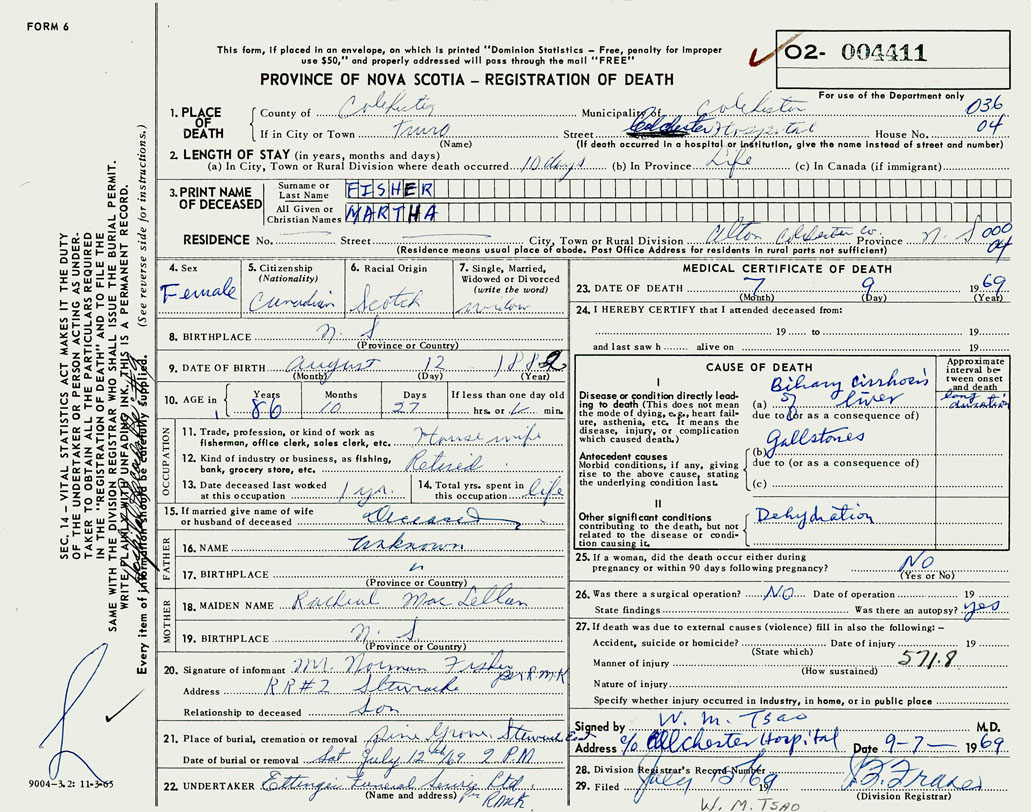 FORM 6
This form, if placed in an envelope, on which is printed "Dominion Statistics – Free, penalty for improper
use $50," and properly addressed will pass through the mail "FREE"
PROVINCE OF NOVA SCOTIA – REGISTRATION OF DEATH
O2- 004411
For use of the Department only
036
04
1. PLACE OF DEATH
County of Colchester Municipality of Colchester
If in City or Town Truro Street Colchester Hospital House No.
(Name) (If death occurred in a hospital or institution, give the name instead of street and number)
2. LENGTH OF STAY (in years, months and days)
(a) In City, Town or Rural Division where death occurred 10 days (b) In Province Life (c) In Canada (if immigrant)
3. PRINT NAME OF DECEASED
Surname or Last Name FISHER
All Given or Christian Names MARTHA
RESIDENCE No. Street City, Town or Rural Division Alton Colchester Co. Province N. S 000
04
(Residence means usual place of abode. Post Office Address for residents in rural parts not sufficient)
4. Sex
Female
5. Citizenship
(Nationality)
Canadian
6. Racial Origin
Scotch
7. Single, Married,
Widowed or Divorced
(write the word)
widow
8. BIRTHPLACE N. S
(Province or Country)
9. DATE OF BIRTH August 12 1882
(Month) (Day) (Year)
10. AGE in
Years Months Days If less than one day old
86 10 27 hrs. or min.
OCCUPATION
11. Trade, profession, or kind of work as
fisherman, office clerk, sales clerk, etc. Housewife
12. Kind of industry or business, as fishing,
bank, grocery store, etc. Retired
13. Date deceased last worked
at this occupation 1 yr.
14. Total yrs. spent in
this occupation life
15. If married give name of wife
or husband of deceased Deceased
FATHER
16. NAME Unknown
17. BIRTHPLACE "
(Province or Country)
MOTHER
18. MAIDEN NAME Racheal MacLellan
19. BIRTHPLACE N. S
(Province or Country)
20. Signature of informant Mr. Norman Fisher per R M K
Address RR#2 Stewiacke
Relationship to deceased Son
21. Place of burial, cremation or removal Pine Grove Steward East
Date of burial or removal Sat July 12th/69 2 P.M.
22. UNDERTAKER Ettinger Funeral Service Ltd.
(Name and address) Per RMK
MEDICAL CERTIFICATE OF DEATH
23. DATE OF DEATH 7 9 1969
(Month) (Day) (Year)
24. I HEREBY CERTIFY that I attended deceased from:
19 to 19
and last saw h alive on 19
CAUSE OF DEATH
Approximate
interval be-
tween onset
and death
I
Disease or condition directly lead-
ing to death (This does not mean
the mode of dying, e.g., heart fail-
ure, asthenia, etc. It means the
disease, injury, or complication
which caused death.)
Biliary Cirrhosis
(a) of liver
long duration
due to (or as a consequence of)
Antecedent causes
Morbid conditions, if any, giving
rise to the above cause, stating
the underlying condition last.
(b) Gallstones
due to (or as a consequence of)
(c)
II
Other significant conditions
contributing to the death, but not
related to the disease or condi-
tion causing it.
Dehydration
25. If a woman, did the death occur either during
pregnancy or within 90 days following pregnancy? NO
(Yes or No)
26. Was there a surgical operation? NO Date of operation 19
State findings Was there an autopsy? yes
27. If death was due to external causes (violence) fill in also the following: –
Accident, suicide or homicide? Date of injury 19
(State which)
Manner of injury 571.8
(How sustained)
Nature of injury
Specify whether injury occurred in Industry, in home, or in public place
Signed by W. M. TSAO M.D.
Address c/o Colchester Hospital Date 9-7- 1969
28. Division Registrar's Record Number
29. Filed July 12 1969
(Division Registrar)
W. M. TSAO
SEC. 14 – VITAL STATISTICS ACT MAKES IT THE DUTY
OF THE UNDERTAKER OR PERSON ACTING AS UNDER-
TAKER TO OBTAIN ALL THE PARTICULARS REQUIRED
IN THE "REGISTRATION OF DEATH" AND TO FILE THE
SAME WITH THE DIVISION REGISTRAR WHO SHALL ISSUE THE BURIAL PERMIT.
WRITE PLAINLY WITH UNFADING INK. THIS IS A PERMANENT RECORD.
Every item of information should be carefully supplied. (See reverse side for instructions.)
9004-3.2: 11-3-65